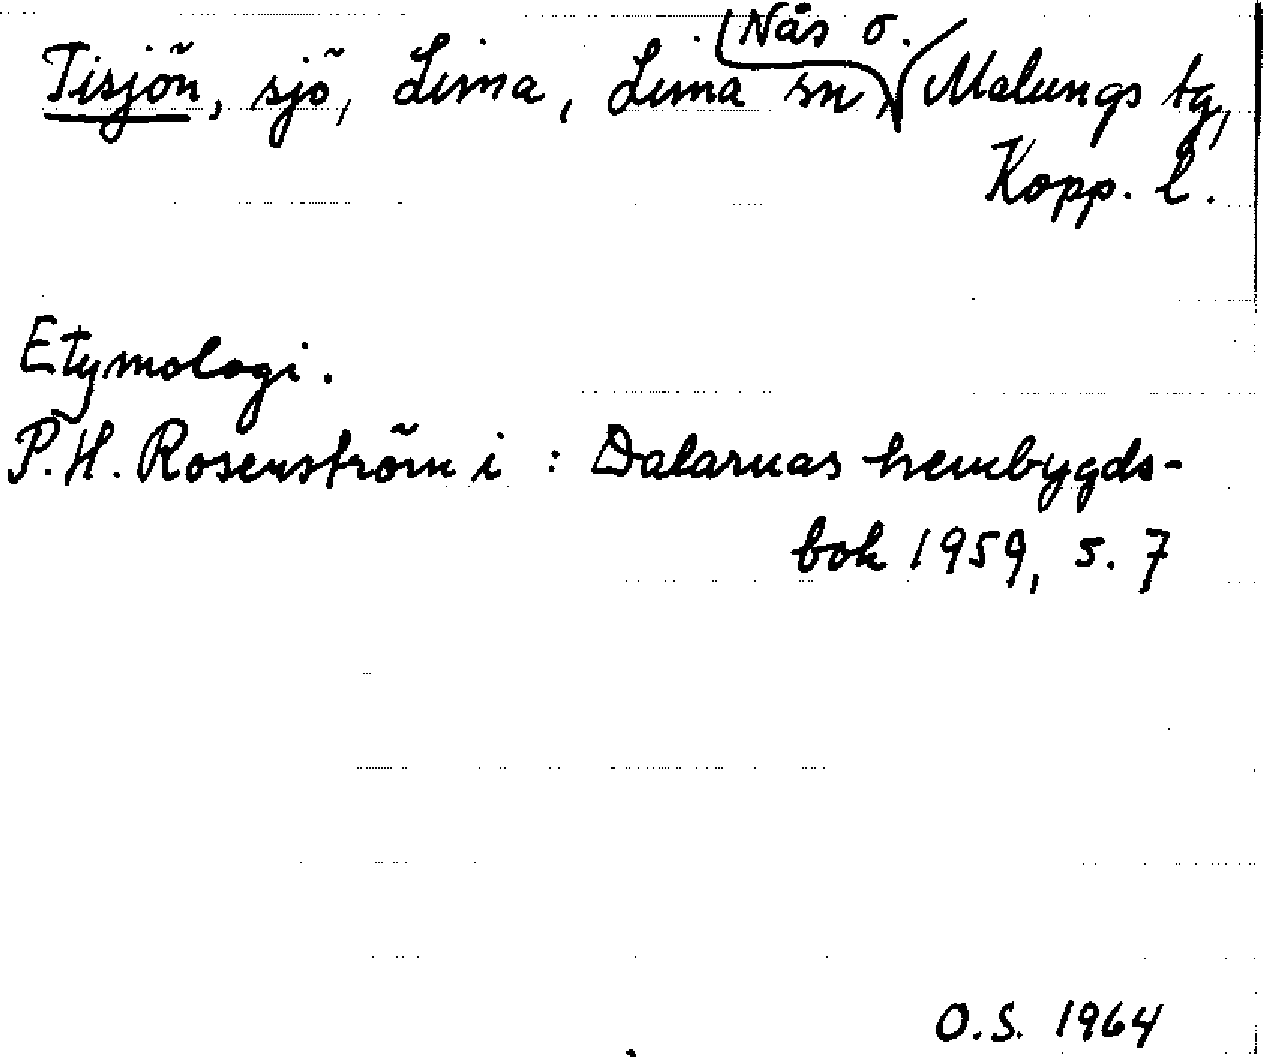 Tisjön, sjö, Lima, Lima sn, Nås o. Malungs tg,
Kopp. l.
Etymologi.
P.H. Rosenström i : Dalarnas hembygds-
bok 1959, s. 7
O.S. 1964